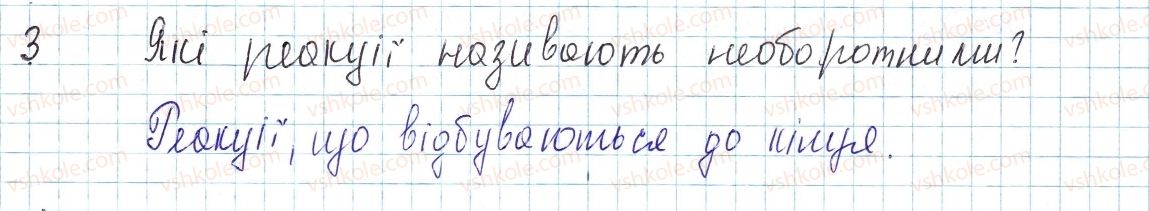 3 Які реакції називають необоротними?
Реакції, що відбуваються до кінця.